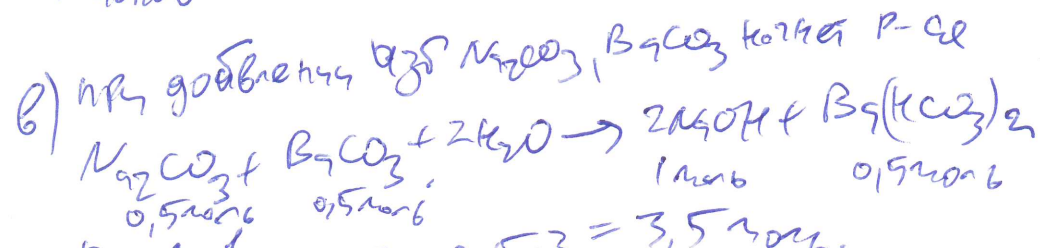 в) при добавлении изб Na2CO3, BaCO3 начнет р-ся
Na2CO3 + BaCO3 + 2H2O → 2NaOH + Ba(HCO3)2
0,5моль 0,5моль 1моль 0,5моль
= 3,5моль